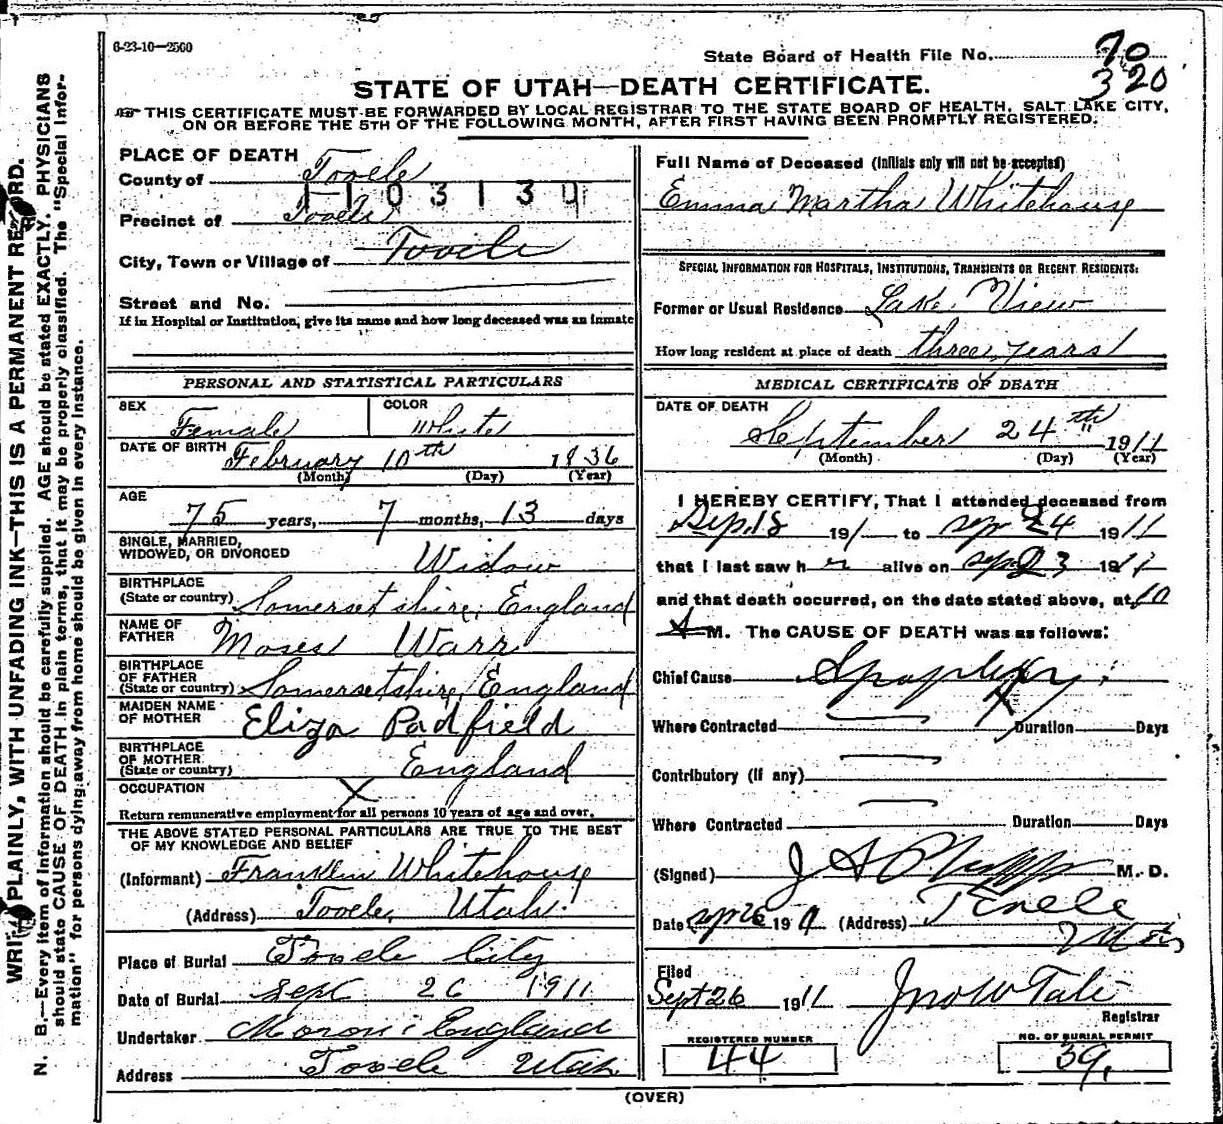 6-23-10—2500
State Board of Health File No. 70
320
STATE OF UTAH—DEATH CERTIFICATE.
THIS CERTIFICATE MUST BE FORWARDED BY LOCAL REGISTRAR TO THE STATE BOARD OF HEALTH, SALT LAKE CITY,
ON OR BEFORE THE 5TH OF THE FOLLOWING MONTH, AFTER FIRST HAVING BEEN PROMPTLY REGISTERED.
PLACE OF DEATH
County of Tooele
1103130
Precinct of Tooele
City, Town or Village of Tooele
Street and No.
If in Hospital or Institution, give its name and how long deceased was an inmate
PERSONAL AND STATISTICAL PARTICULARS
SEX Female COLOR White
DATE OF BIRTH February 10th 1836
(Month) (Day) (Year)
AGE
75 years, 7 months, 13 days
SINGLE, MARRIED,
WIDOWED, OR DIVORCED Widow
BIRTHPLACE
(State or country) Somersetshire, England
NAME OF
FATHER Moses Warr
BIRTHPLACE
OF FATHER
(State or country) Somersetshire, England
MAIDEN NAME
OF MOTHER Eliza Padfield
BIRTHPLACE
OF MOTHER
(State or country) England
OCCUPATION X
Return remunerative employment for all persons 10 years of age and over.
THE ABOVE STATED PERSONAL PARTICULARS ARE TRUE TO THE BEST
OF MY KNOWLEDGE AND BELIEF
(Informant) Franklin Whitehouse
(Address) Tooele, Utah.
Place of Burial Tooele City
Date of Burial Sept 26 1911
Undertaker Moroni England
Address Tooele Utah
Full Name of Deceased (Initials only will not be accepted)
Emma Martha Whitehouse
SPECIAL INFORMATION FOR HOSPITALS, INSTITUTIONS, TRANSIENTS OR RECENT RESIDENTS:
Former or Usual Residence Lake View
How long resident at place of death three years
MEDICAL CERTIFICATE OF DEATH
DATE OF DEATH
September 24th 1911
(Month) (Day) (Year)
I HEREBY CERTIFY, That I attended deceased from
Sep 18 191 to Sep 24 1911
that I last saw h r alive on Sep 23 1911
and that death occurred, on the date stated above, at 10
A M. The CAUSE OF DEATH was as follows:
Chief Cause Apoplexy
Where Contracted Duration Days
Contributory (if any)
Where Contracted Duration Days
(Signed) J A Phipps M. D.
Date Sep 26 1911 (Address) Tooele
Utah
Filed
Sept 26 1911 Jno W Tate
Registrar
REGISTERED NUMBER
44
NO. OF BURIAL PERMIT
39.
(OVER)
WRITE PLAINLY, WITH UNFADING INK—THIS IS A PERMANENT RECORD.
N. B.—Every item of information should be carefully supplied. AGE should be stated EXACTLY. PHYSICIANS
should state CAUSE OF DEATH in plain terms, that it may be properly classified. The "Special Infor-
mation" for persons dying away from home should be given in every instance.